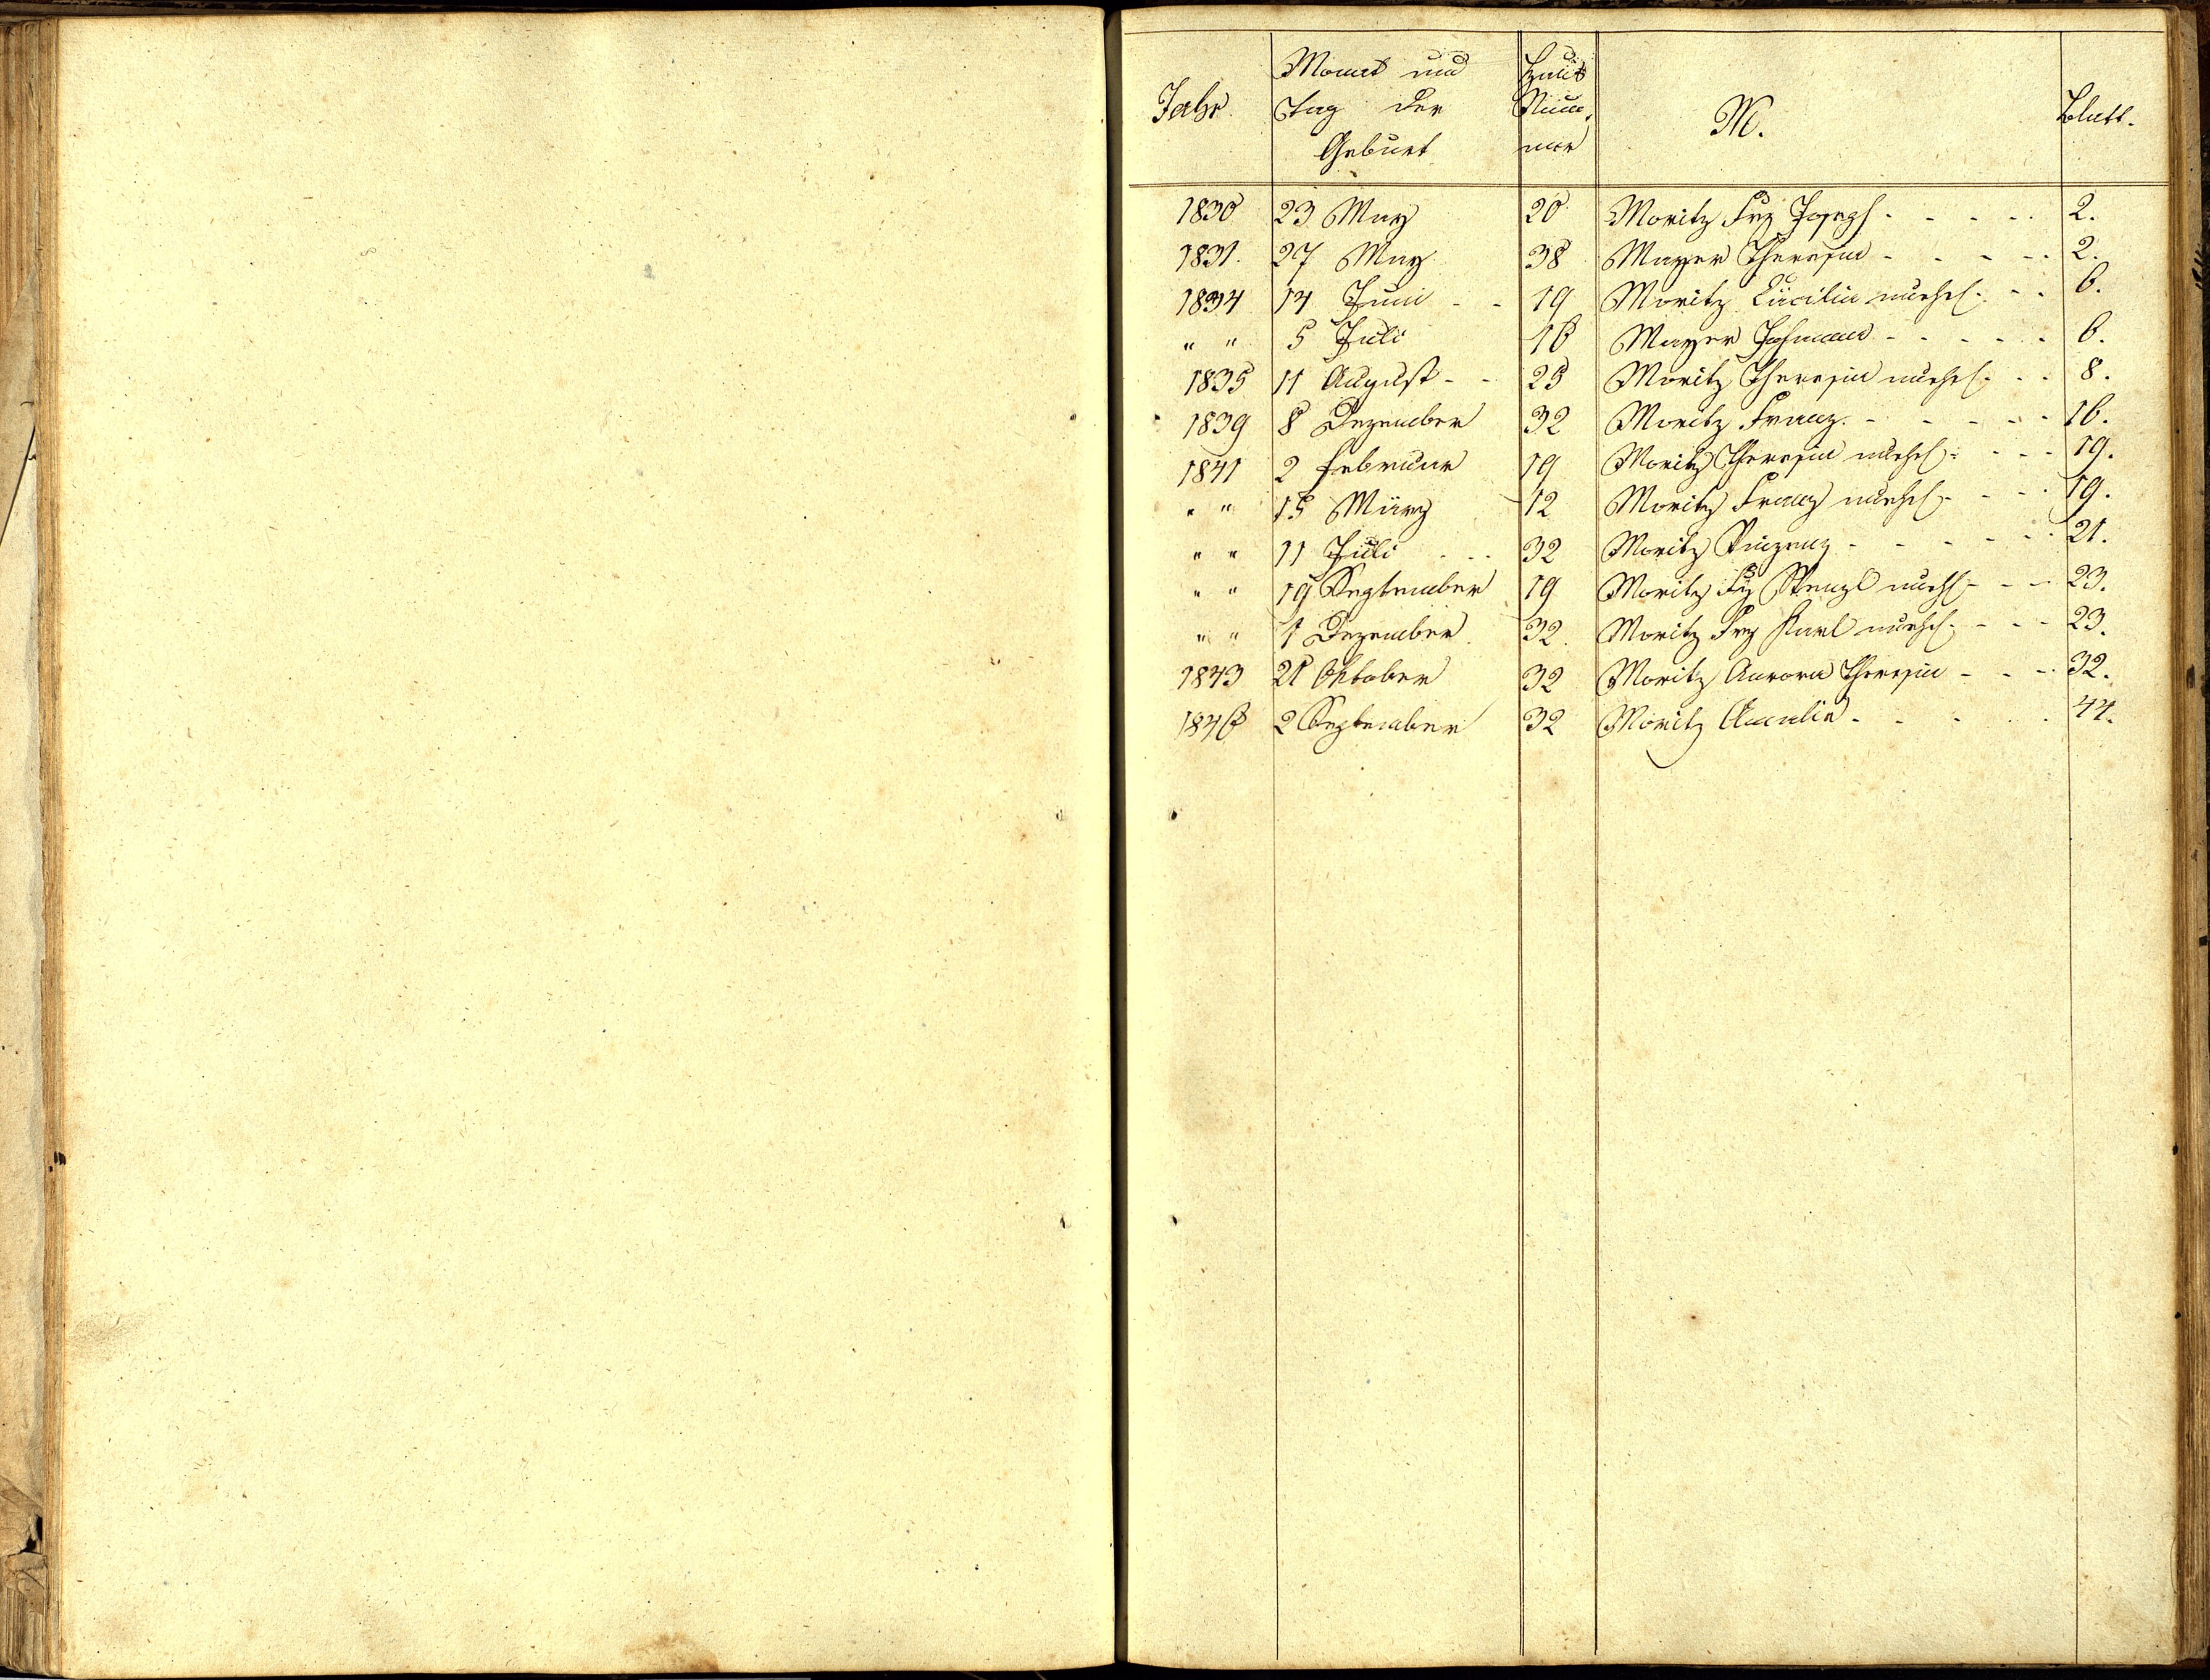 Jahr Monat und Tag der Geburt Haus Num̅mer M. Blatt.
1830 23 May 20 Moritz Frz Joseph - - - - 2.
1831. 27 May 38 Mayer Theresia - - - - 2.
1834 14 Juni - - 19 Moritz Cäcilia unehel. - - 6.
" " 5 Juli 16 Mayer Johann - - - - - 6.
1835 11 August - - 25 Moritz Theresia unehel. - - 8.
1839 8 Dezember 32 Moritz Franz. - - - - - 16.
1841 2 Februar 19 Moritz Theresia unehel. - - - 19.
" " 15 März 12 Moritz Franz unehel. - - - 19.
" " 11 Juli - - - 32 Moritz Vinzenz - - - - - 21.
" " 19 September 19 Moritz Fz Wenzl unehl. - - - 23.
" " 1 Dezember 32. Moritz Frz Karl unehel. - - - 23.
1843 21 Oktober 32 Moritz Aurora Theresia - - - 32.
1846 2 September 32 Moritz Amalia - - - - - 44.